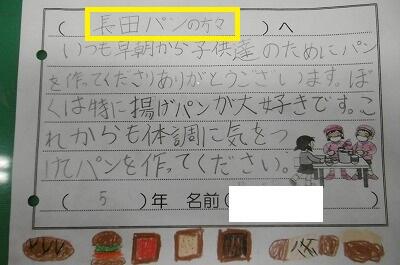 (長田パンの方々)へ
いつも早朝から子供達のためにパン
を作ってくださりありがとうございます。ぼ
くは特に揚げパンが大好きです。こ
れからも体調に気をつ
けパンを作ってください。
(5)年 名前(